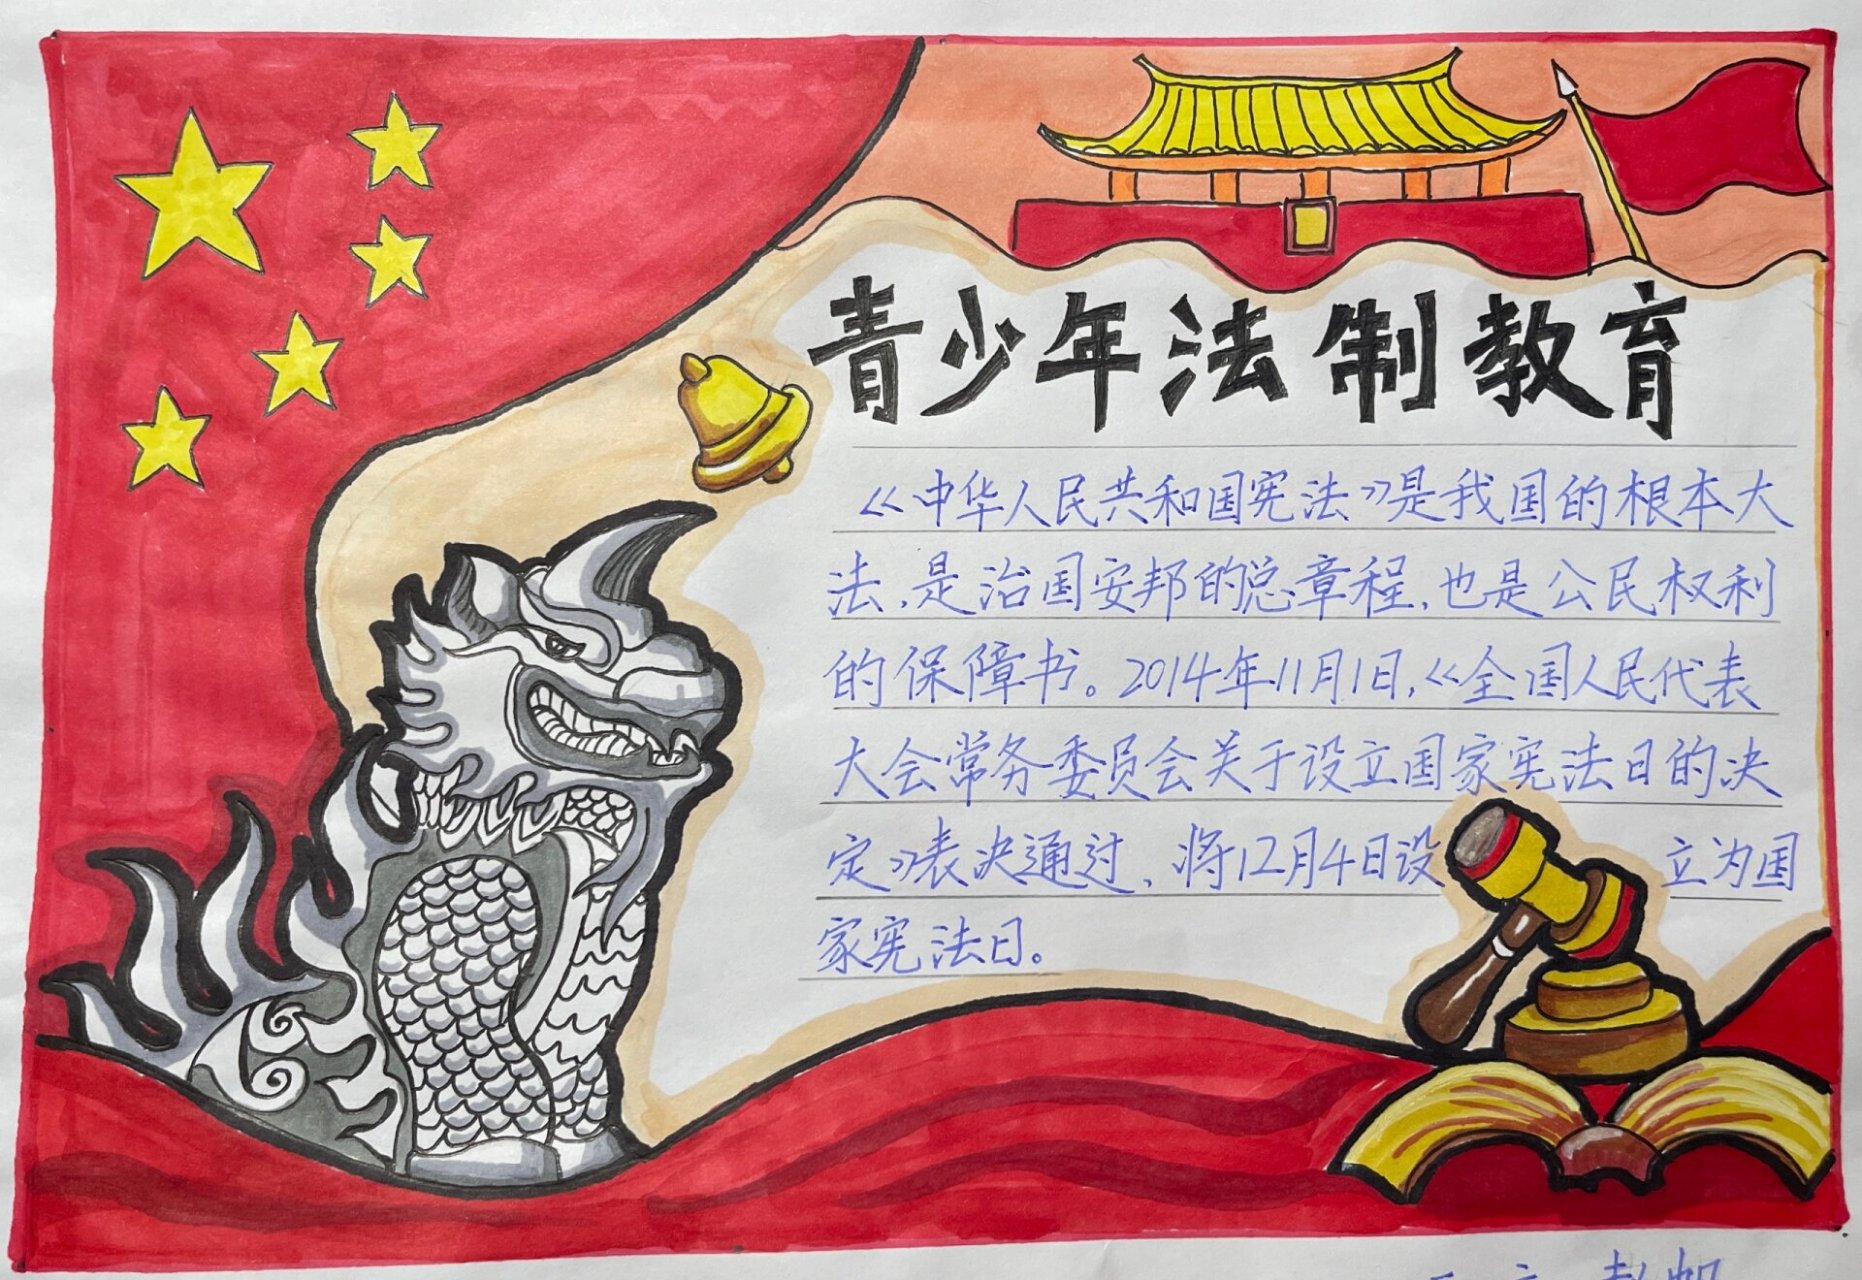 青少年法制教育
《中华人民共和国宪法》是我国的根本大
法,是治国安邦的总章程,也是公民权利
的保障书。2014年11月1日,《全国人民代表
大会常务委员会关于设立国家宪法日的决
定》表决通过、将12月4日设立为国
家宪法日。